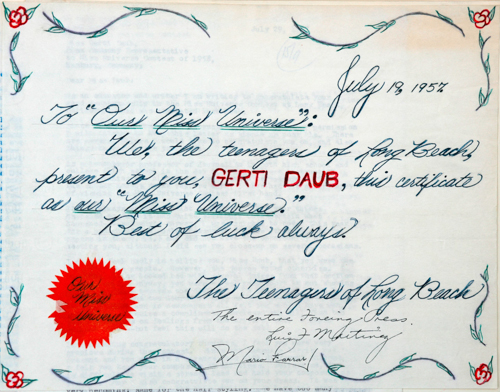 July 19, 1957
To "Our Miss Universe":
We, the teenagers of Long Beach,
present to you, GERTI DAUB, this certificate
as our "Miss Universe."
Best of luck always.
Our
Miss
Universe
The Teenagers of Long Beach
The entire Foreign Press.